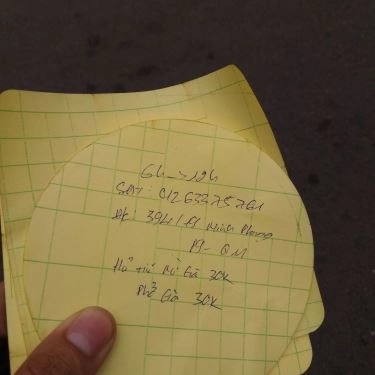 6h → 12h
SĐT: 01263375761
Đc 394/ Minh Phụng
P9 - Q11
Hủ tiếu Mì Gà 30K
Phở Gà 30K